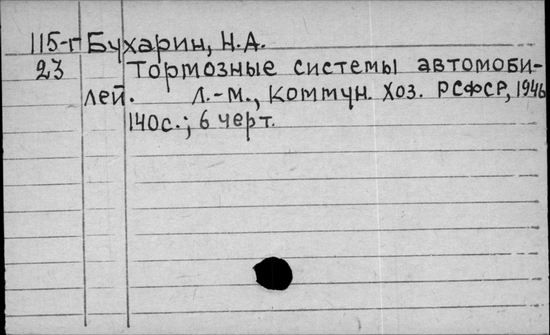 115-г Бухарин, Н.А.
23 Тормозные системы автомоби-
лей. Л.-М., Коммун. хоз. РСФСР, 1946
140с.; 6 черт.